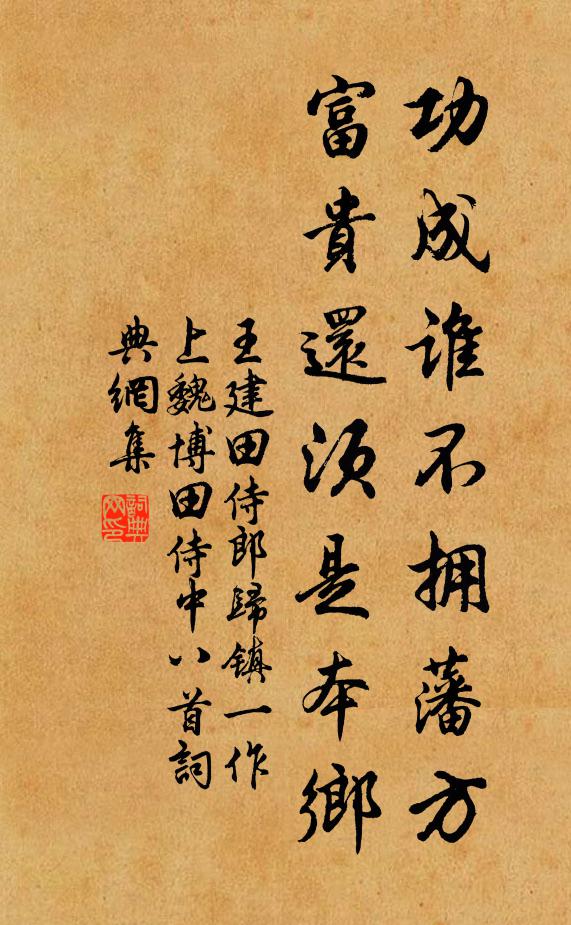 功成誰不拥藩方
富貴還須是本鄉
王建田侍郎歸鎮一作
上魏博田侍中八首詞
典網集
詞典網印